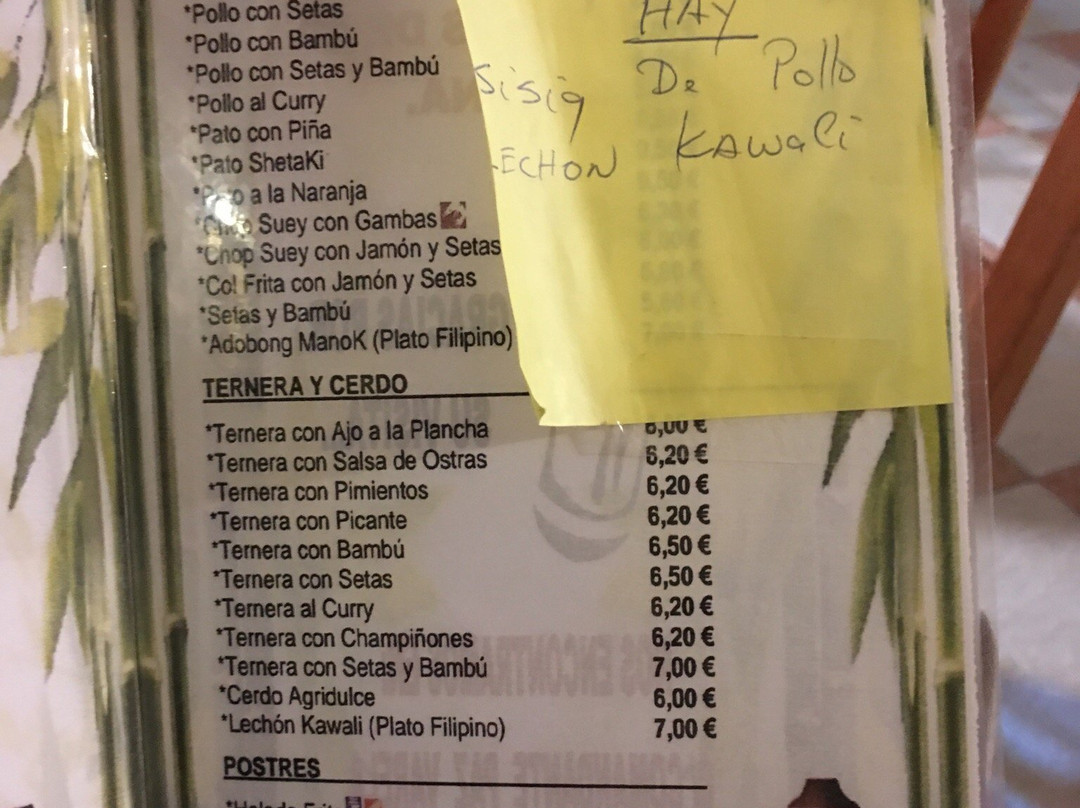 *Pollo con Setas
*Pollo con Bambú
*Pollo con Setas y Bambú
*Pollo al Curry
*Pato con Piña
*Pato ShetaKi
*Pato a la Naranja
*Chop Suey con Gambas
*Chop Suey con Jamón y Setas
*Col Frita con Jamón y Setas
*Setas y Bambú
*Adobong ManoK (Plato Filipino)
HAY
Sisig De Pollo
LECHON KAWALi
TERNERA Y CERDO
*Ternera con Ajo a la Plancha 6,00 €
*Ternera con Salsa de Ostras 6,20 €
*Ternera con Pimientos 6,20 €
*Ternera con Picante 6,20 €
*Ternera con Bambú 6,50 €
*Ternera con Setas 6,50 €
*Ternera al Curry 6,20 €
*Ternera con Champiñones 6,20 €
*Ternera con Setas y Bambú 7,00 €
*Cerdo Agridulce 6,00 €
*Lechón Kawali (Plato Filipino) 7,00 €
POSTRES